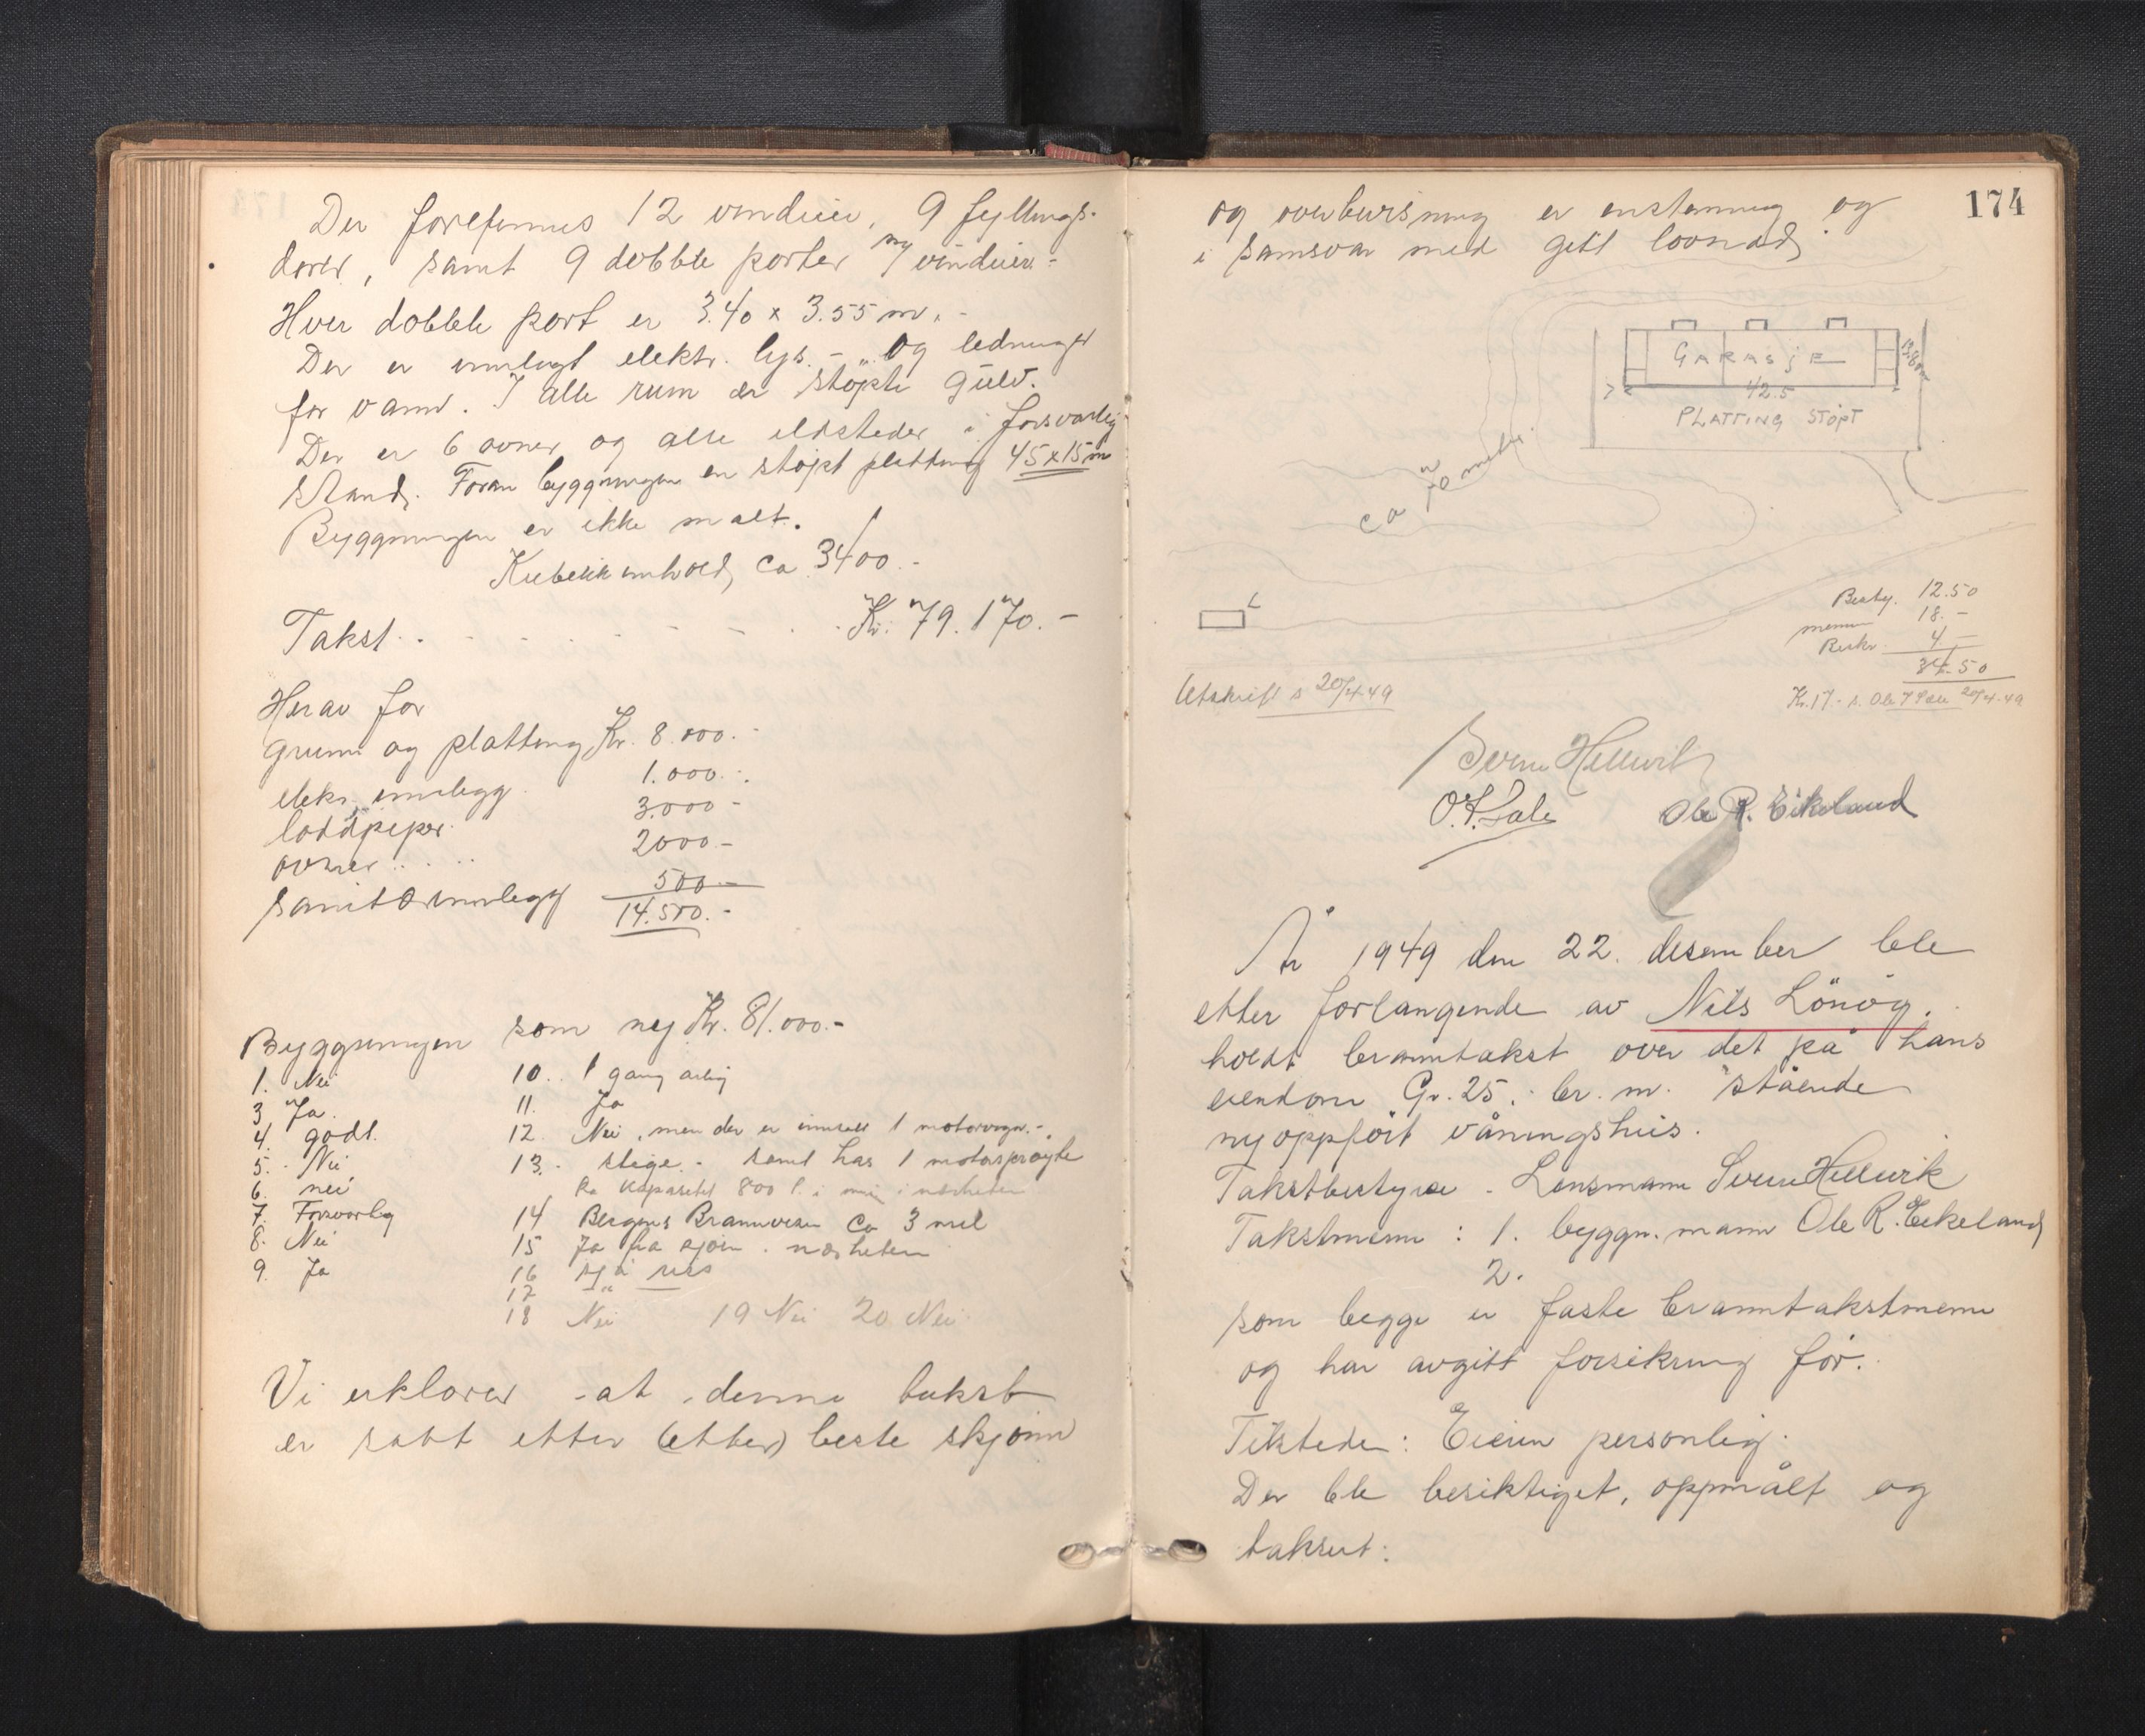 Der forefinnes 12 vinduer, 9 fyllings-
dører, samt 9 dobble porter m/ vinduer.-
Hver dobble port er 3.40 x 3.55 m.-
Der er innlagt elektr. lys. - og ledninger
for vann. I alle rum er støpte gulv.
Der er 6 ovner og alle ildsteder i forsvarlig
stand. Foran byggningen en støpt platting 45x15 m
Byggningen er ikke malt.
Kubikkinnhold ca 3400.-
Takst . . Kr. 79.170.-
Herav for
grunn og platting Kr. 8.000.-
elekr. innlegg 1.000.-
loddpiper 3.000-
ovner . . . . 2000.-
sanitærinnlegg 500.-
14.500.-
Byggningen som ny Kr. 81.000.-
1. Nei
3 Ja.
4. godt.
5. Nei
6. nei
7. Forsvarlig
8. Nei
9. Ja
10. . 1 gang årlig
11. Ja
12. Nei, men der er innsatt 1 motorvogn.-
13. stige. - samt har 1 motorsprøyte
ka kapasitet 800 l. i min i nærheten
14 Bergens Brannvesen ca 3 mil
15 Ja fra sjøen i nærheten
16 sjø
17 "
18 Nei 19 Nei 20 Nei
Vi erklærer at denne takst
er satt etter (etter) beste skjønn
174
og overbevisning er enstemmig og
i samsvar med gitt lovnad.
GARASJE
42.5
PLATTING STØPT
ca 70 meter.
Besty. 12.50
menn 18.-
Beskr. 4.-
34.50
Utskrift s 20/4 49
Kr. 17 - s. Ole 20/4-49
Sverre Hellevik
O. F. Dale Ole R. Eikeland
År 1949 den 22. desember ble
etter forlangende av Nils Lönöy.
holdt branntakst over det på hans
eiendom Gr. 25. br. m. stående
nyoppført våningshus.
Takstbestyrer - Lensmann Sverre Hellevik
Takstmenn : 1. byggn. mann Ole R. Eikeland
2.
som begge er faste branntakstmenn
og har avgitt forsikring før.
Tilstede: Eieren personlig.
Der ble besiktiget, oppmålt og
taksert: